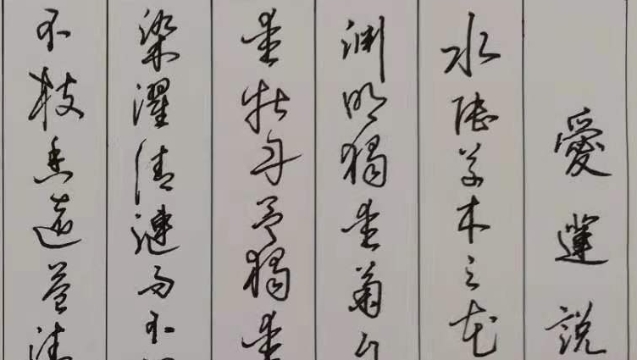 愛蓮說
水陸草木之花
淵明獨愛菊
愛牡丹予獨愛
染濯清漣而不
不枝香遠益清